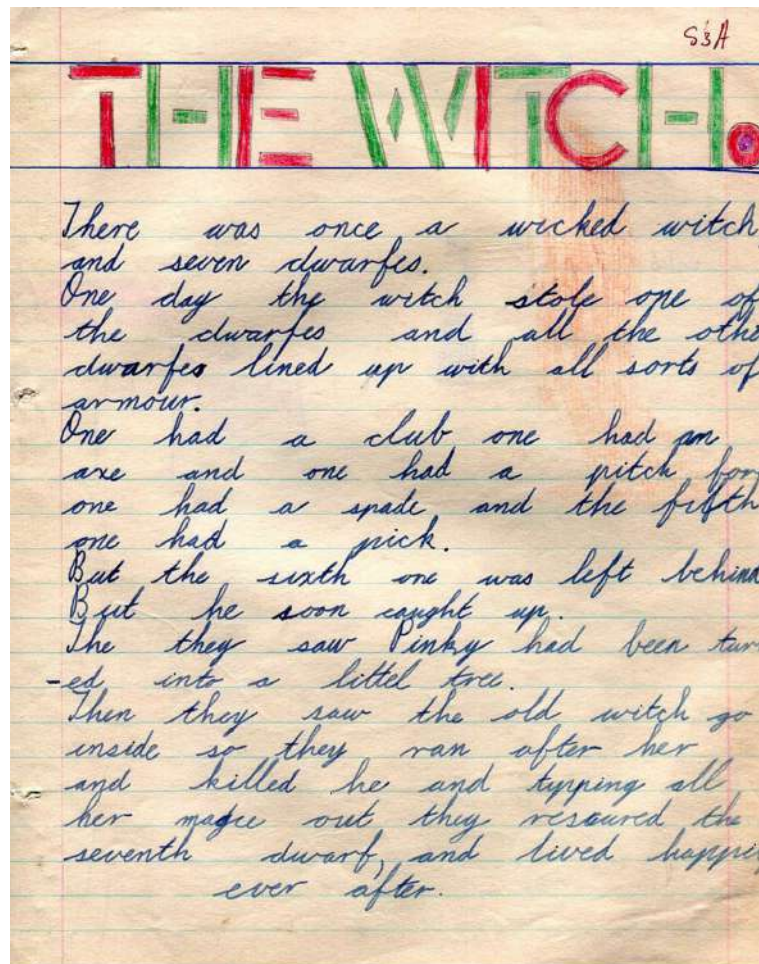 S3A
THE WITCH.
There was once a wicked witch
and seven dwarfes.
One day the witch stole one of
the dwarfes and all the othe
dwarfes lined up with all sorts of
armour.
One had a club one had an
axe and one had a pitch for
one had a spade and the fifth
one had a pick.
But the sixth one was left behind
But he soon caught up.
The they saw Pinky had been turn
-ed into a littel tree.
Then they saw the old witch go
inside so they ran after her
and killed he and typping all
her magce out they rescured the
seventh dwarf, and lived happi
ever after.